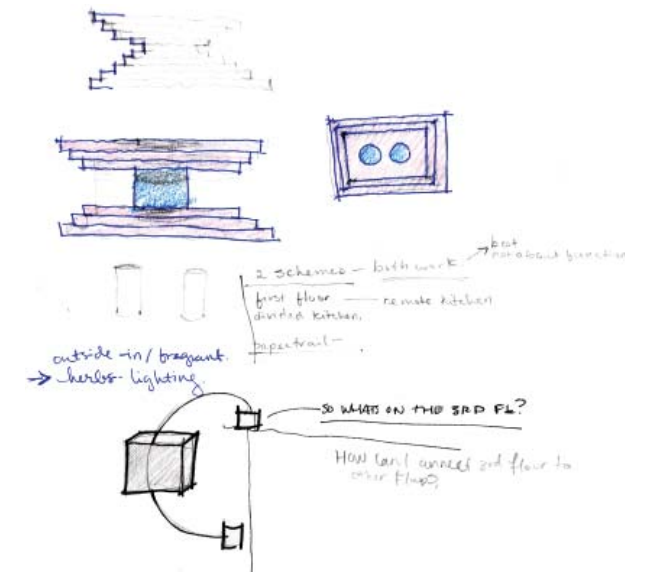 2 schemes - both work.
best
not about function
first floor — remote kitchen
divided kitchen.
papertrail -
outside-in/fragrant.
→ herbs-lighting.
SO WHATS ON THE 3RD FL?
HOW can I connect 3rd floor to
other